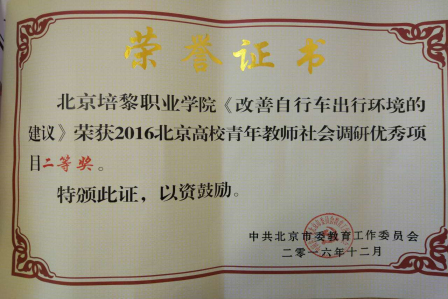 荣誉证书
北京培黎职业学院《改善自行车出行环境的
建议》荣获2016北京高校青年教师社会调研优秀项
目二等奖。
特颁此证，以资鼓励。
中共北京市委教育工作委员会
二零一六年十二月